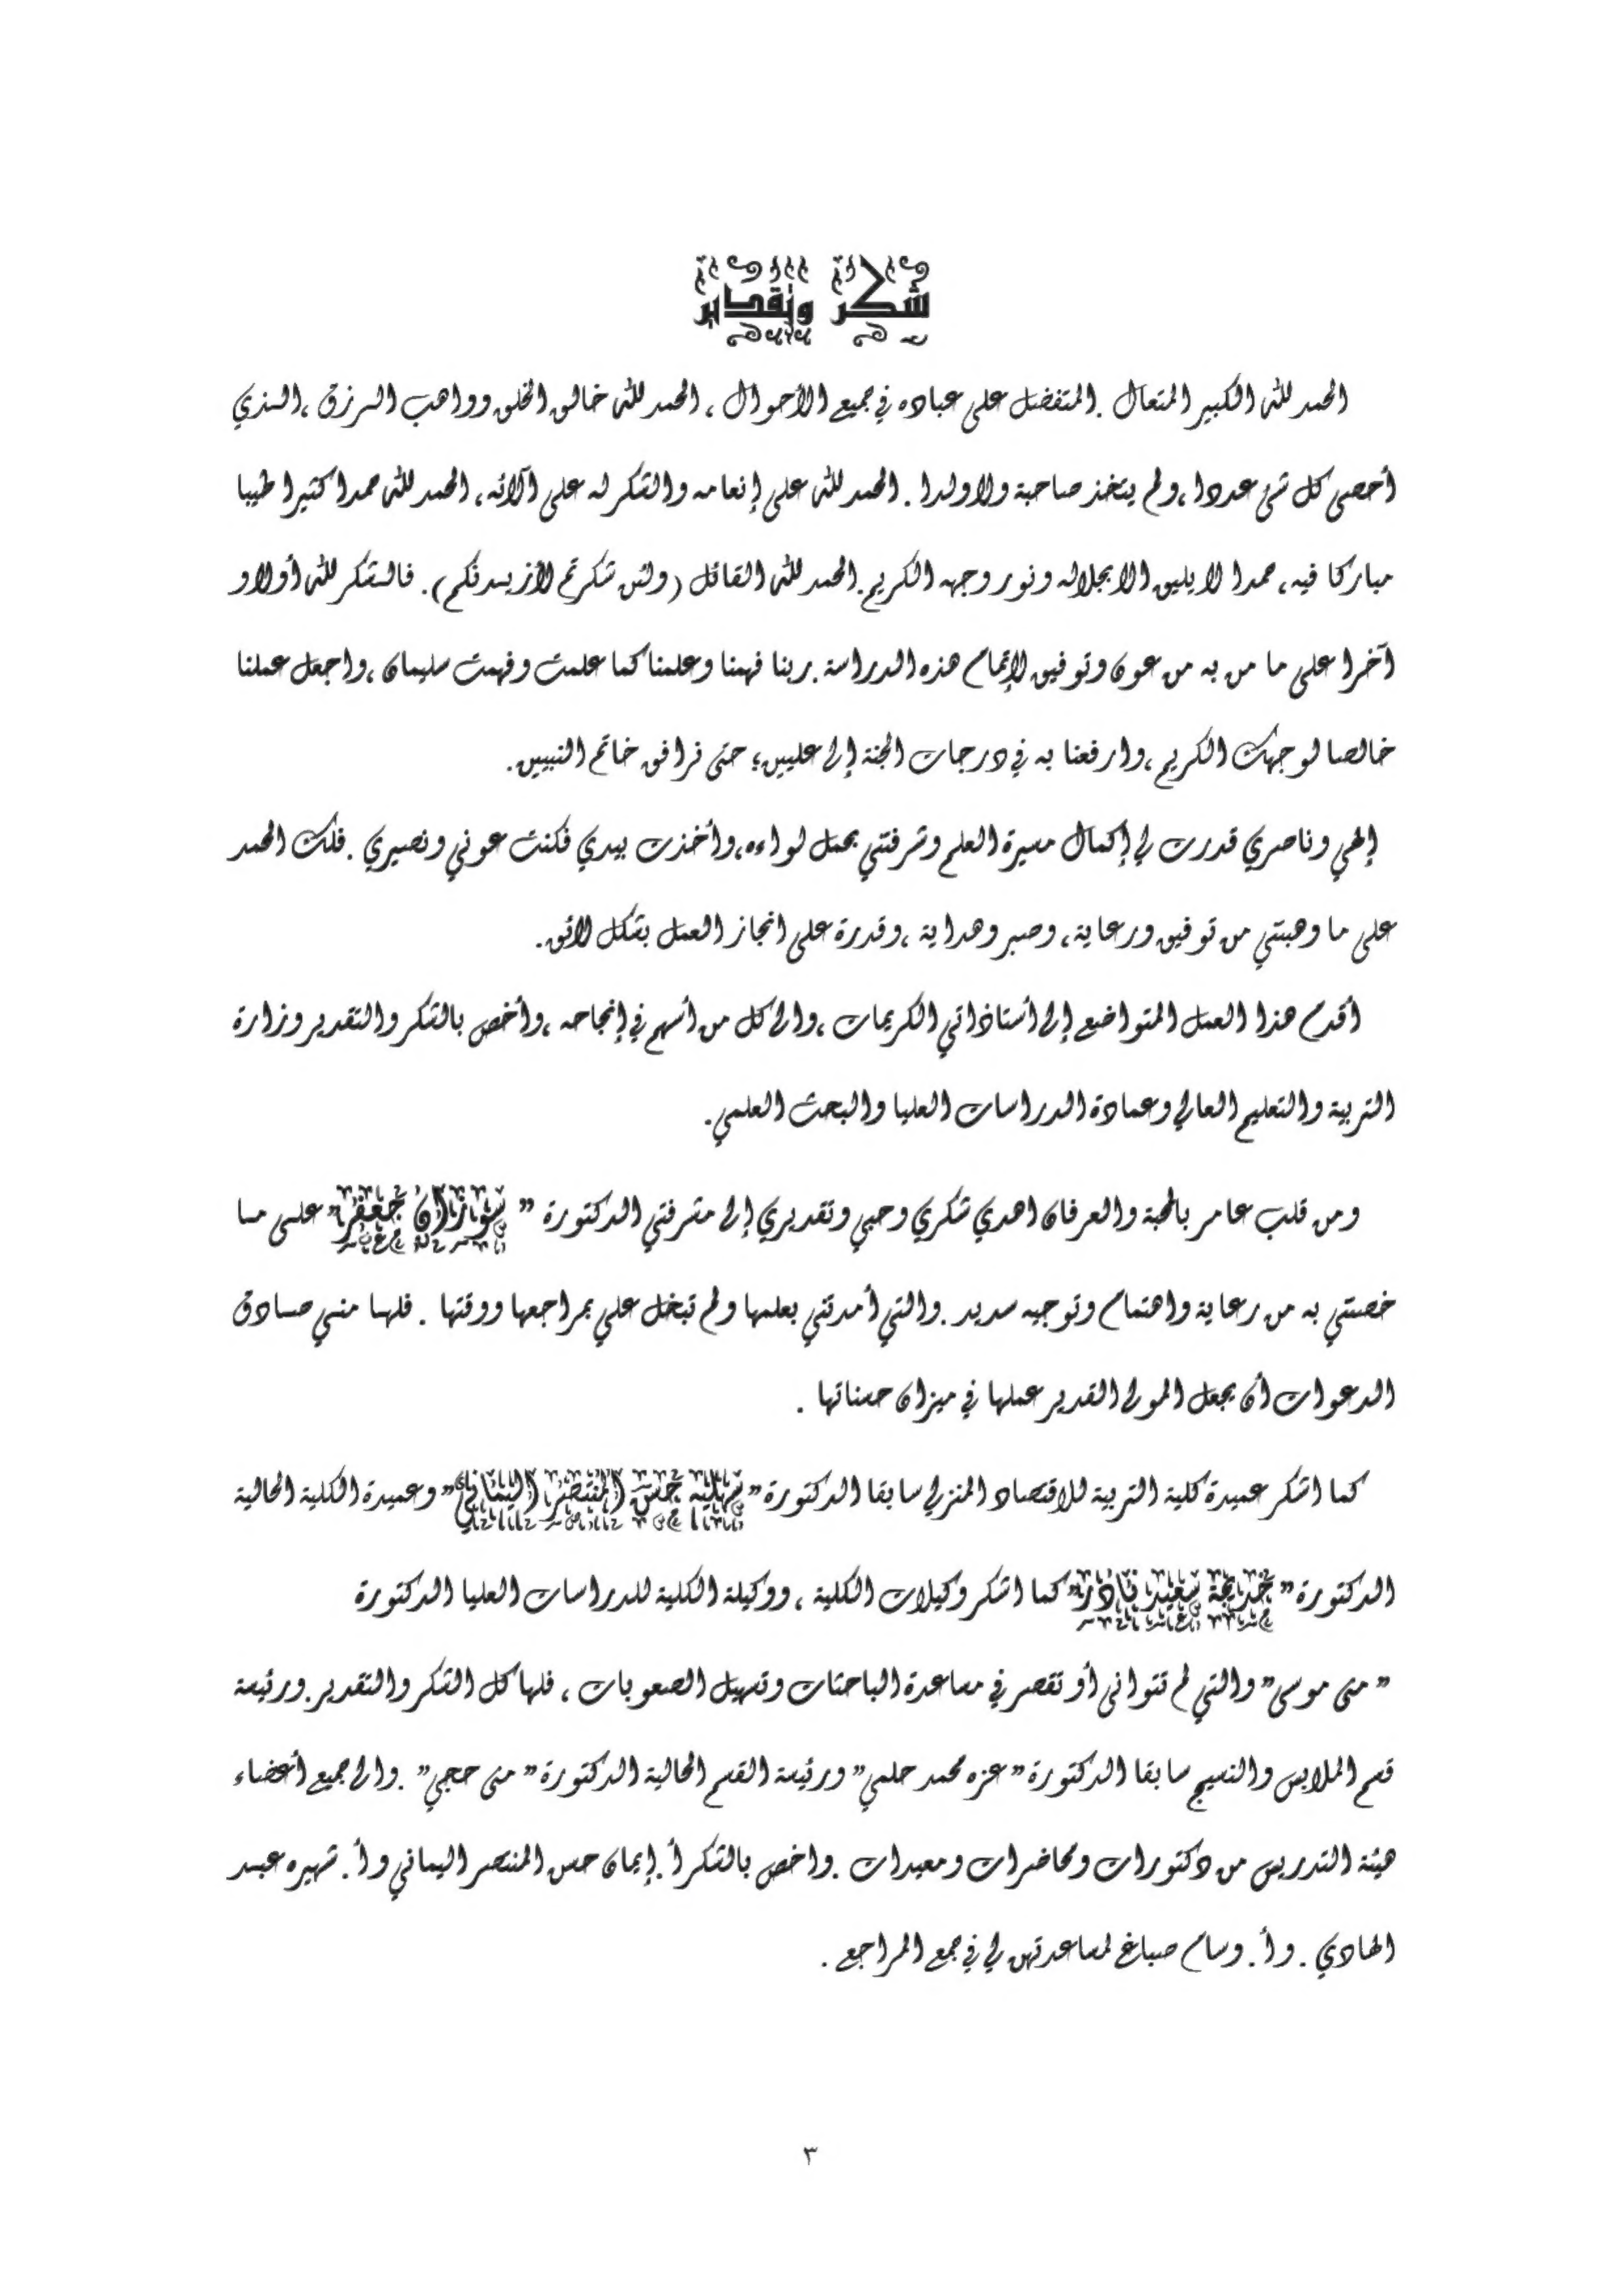 شكر وتقدير
الحمد لله الكبير المتعال .المتفضل على عباده في جميع الأحوال ، الحمد لله خالق الخلق وواهب الرزق ،الذي
أحصى كل شئ عددا ،ولم يتخذ صاحبة ولا ولدا . الحمد لله على إنعامه والشكر له على آلائه، الحمد لله حمدا كثيرا طيبا
مباركا فيه، حمدا لا يليق الا بجلاله ونور وجهه الكريم.الحمد لله القائل (ولئن شكرتم لأزيدنكم). فالشكر لله أولا و
آخرا على ما من به من عون وتوفيق لإتمام هذه الدراسة. ربنا فهمنا وعلمنا كما علمت وفهمت سليمان ،واجعل عملنا
خالصا لوجهك الكريم ،وارفعنا به في درجات الجنة إلى عليين؛ حتى نرافق خاتم النبيين.
إلهي وناصري قدرت لي إكمال مسيرة العلم وشرفتني بحمل لواءه،وأخذت بيدي فكنت عوني ونصيري .فلك الحمد
على ما وهبتني من توفيق ورعاية، وصبر وهداية ،وقدرة على انجاز العمل بشكل لائق.
أقدم هذا العمل المتواضع إلى أستاذاتي الكريمات ،والى كل من أسهم في إنجاحه ،وأخص بالشكر والتقدير وزارة
التربية والتعليم العالي وعمادة الدراسات العليا والبحث العلمي.
ومن قلب عامر بالمحبة والعرفان اهدي شكري وحبي وتقديري إلى مشرفتي الدكتورة " سوزان جعفر" على ما
خصتني به من رعاية واهتمام وتوجيه سديد .والتي أمدتني بعلمها ولم تبخل علي بمراجعها ووقتها . فلها مني صادق
الدعوات أن يجعل المولى القدير عملها في ميزان حسناتها .
كما اشكر عميدة كلية التربية للاقتصاد المنزلي سابقا الدكتورة" سهلية حسن المنتصر اليماني" وعميدة الكلية الحالية
الدكتورة" خديجة سعيد نادر" كما اشكر وكيلات الكلية ، ووكيلة الكلية للدراسات العليا الدكتورة
" منى موسى" والتي لم تتوانى أو تقصر في مساعدة الباحثات وتسهيل الصعوبات ، فلها كل الشكر والتقدير.ورئيسة
قسم الملابس والنسيج سابقا الدكتورة" عزه محمد حلمي" ورئيسة القسم الحالية الدكتورة" منى حجي" .والى جميع أعضاء
هيئة التدريس من دكتورات ومحاضرات ومعيدات .واخص بالشكر أ.إيمان حسن المنتصر اليماني وأ. شهيره عبد
الهادي . وأ. وسام صباغ لمساعدتهن لي في جمع المراجع .
٣